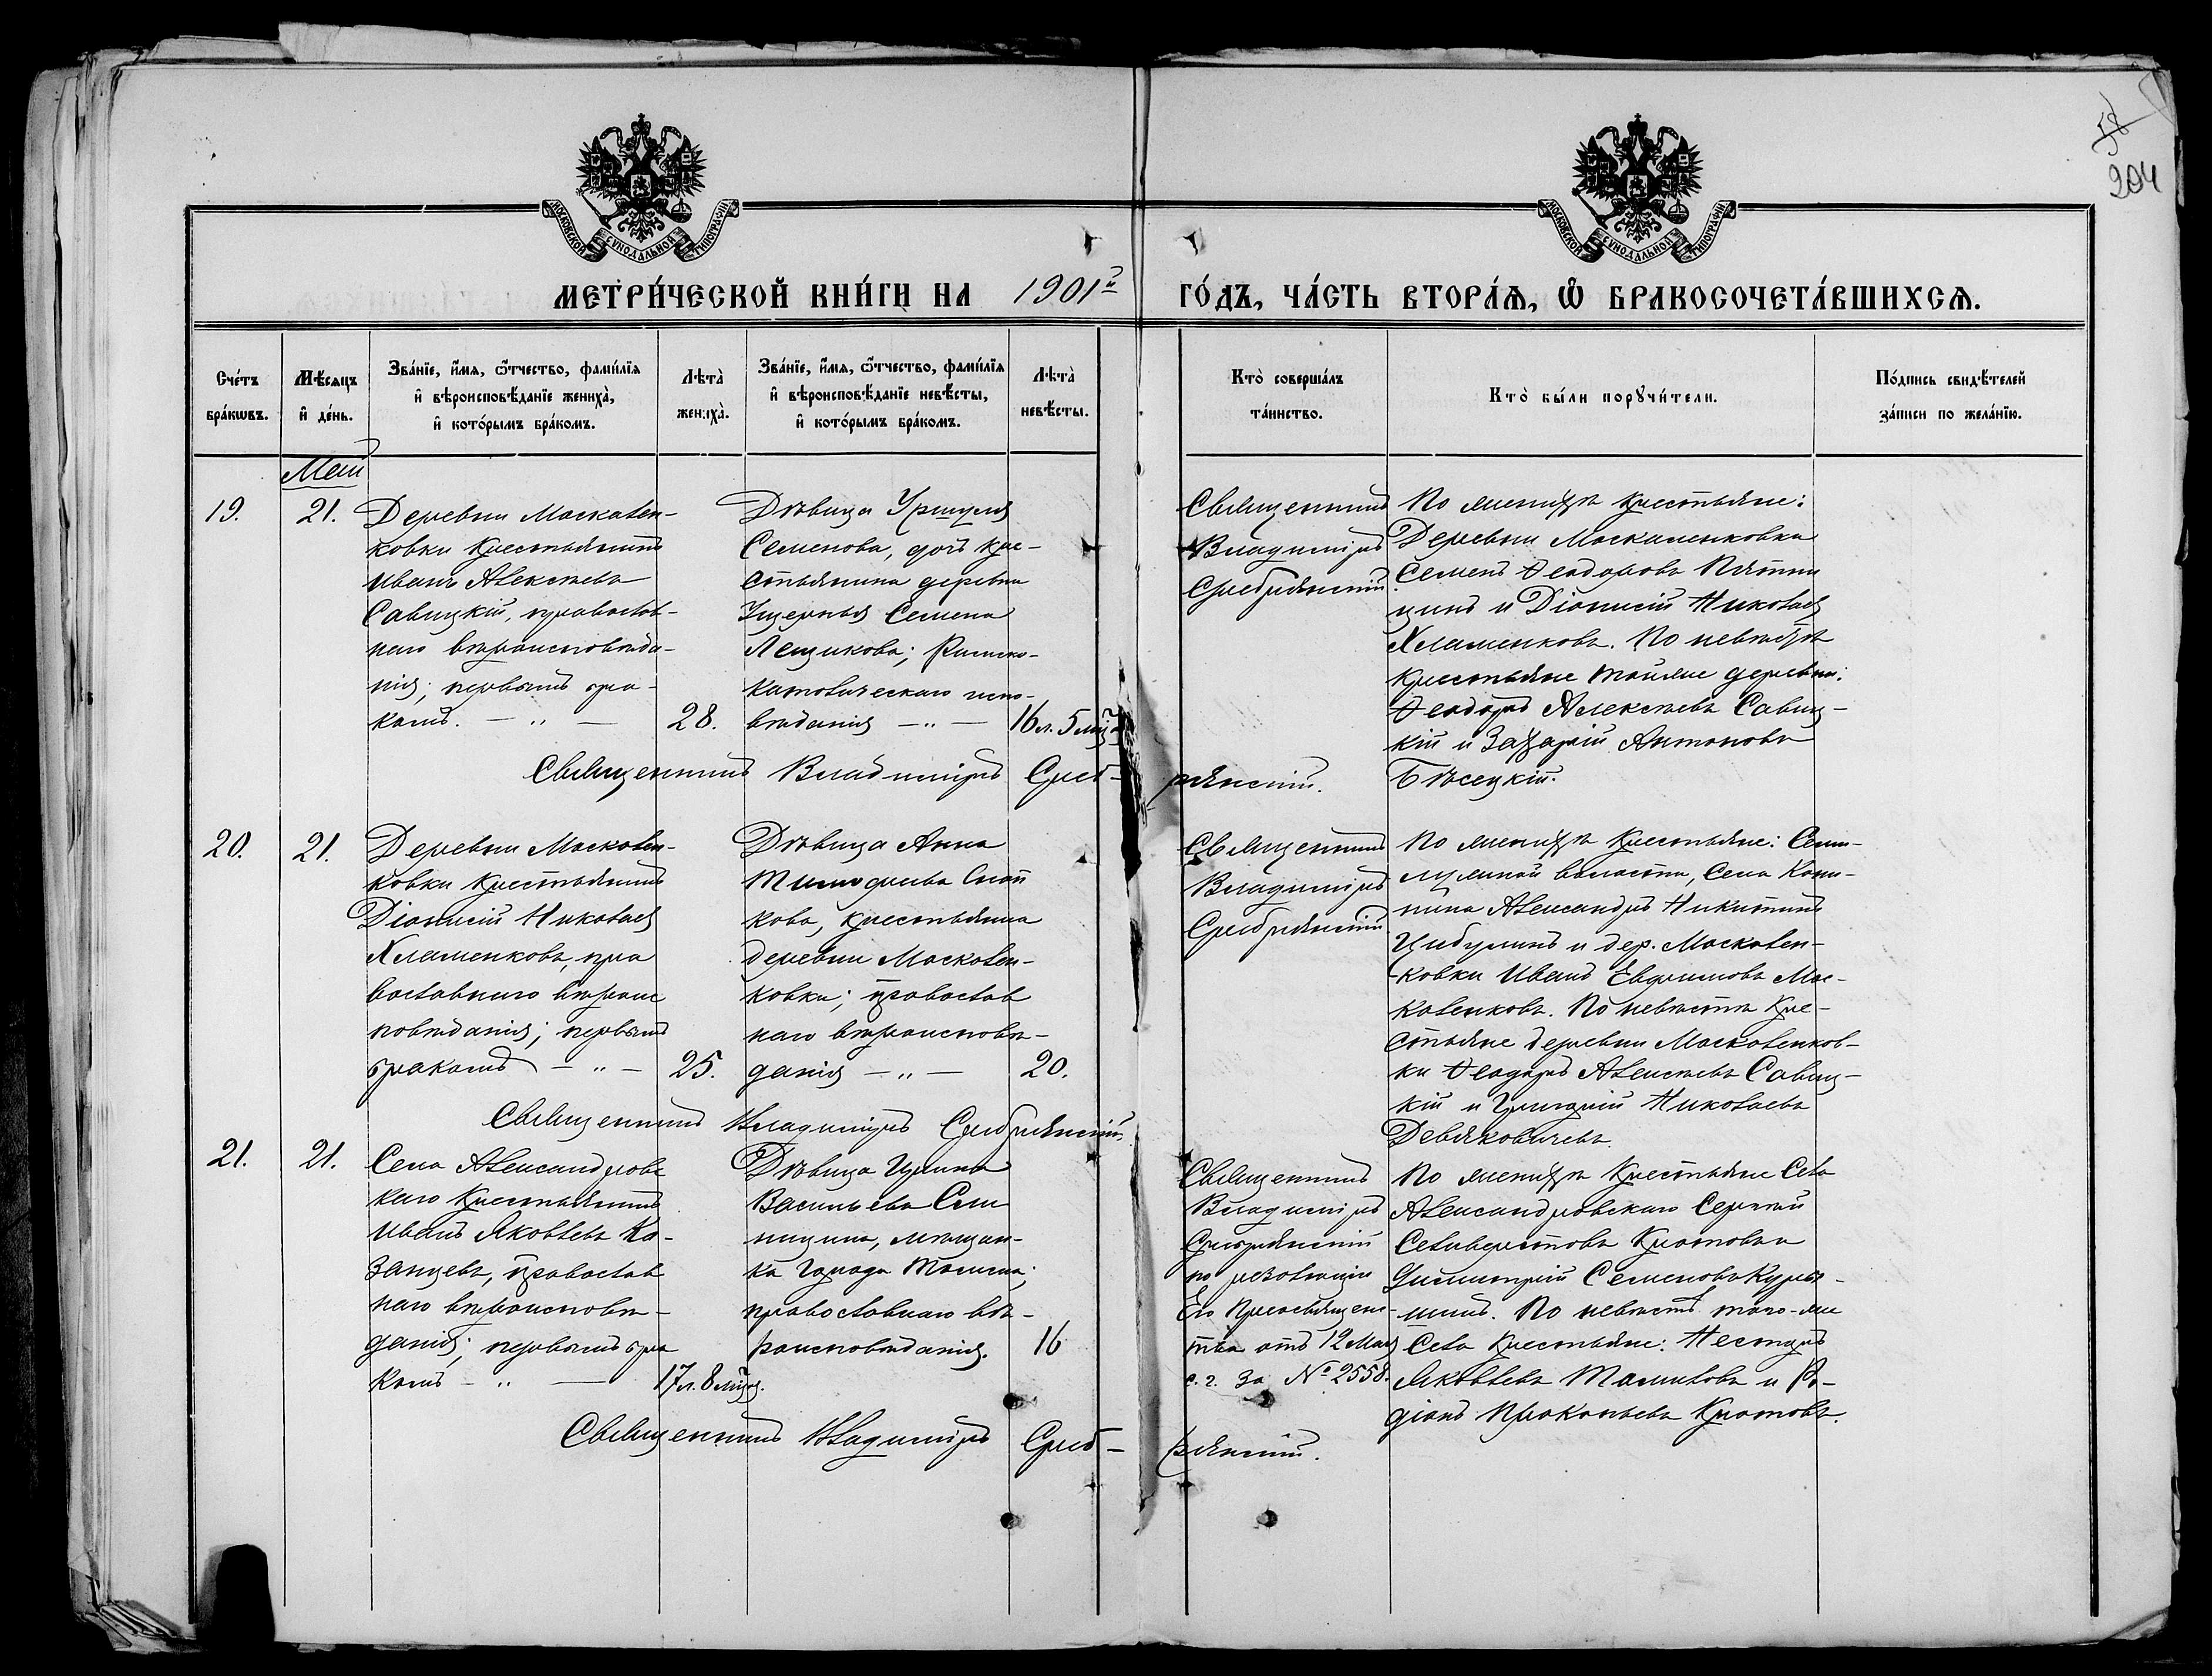 58
204
МОСКОВСКОЙ СУНОДАЛЬНОЙ ТИПОГРАФІИ
МОСКОВСКОЙ СУНОДАЛЬНОЙ ТИПОГРАФІИ
МЕТРИ́ЧЕСКОЙ КНИ́ГИ НА 1901й ГО́ДЪ, ЧА́СТЬ ВТОРА́Ѧ, Ѽ БРАКОСОЧЕТА́ВШИХСѦ.
Счетъ бра́кѡвъ.
Мѣсѧцъ и҆ де́нь.
Зва́нїе, и҆́мѧ, ѻ҆́тчество, фами́лїѧ и҆ вѣроисповѣ́данїе жениха̀, и҆ кото́рымъ бра́комъ.
Лѣта̀ жениха̀.
Зва́нїе, и҆́мѧ, ѻ҆́тчество, фами́лїѧ и҆ вѣроисповѣ́данїе невѣ́сты, и҆ кото́рымъ бра́комъ.
Лѣта̀ невѣ́сты.
Кто̀ соверша́лъ та́инство.
Кто̀ бы́ли порꙋчи́тели.
По́дпись свидѣ́телей за́писи по жела́нїю.
Май
19.
21.
Деревни Москален-
ковки крестьянинъ
Иванъ Алексѣевъ
Савицкій, православ-
наго вѣроисповѣда-
нія; первымъ бра-
комъ. — " —
28.
Дѣвица Уршуля
Семенова, дочь кре-
стьянина деревни
Ущерпья Семена
Лещикова; Римско-
католическаго испо-
вѣданія — " —
16 л. 5 мѣс.
Священникъ
Владиміръ
Сребрянскій
По женихѣ крестьяне:
Деревни Москаленковки
Семенъ Ѳеодоровъ Пятни
цинъ и Діонисій Николаев
Хламенковъ. По невѣстѣ
крестьяне той же деревни:
Ѳеодоръ Алексѣевъ Савиц-
кій и Захарій Антоновъ
Бѣсецкій.
Священникъ Владиміръ Среб-
рянскій.
20.
21.
Деревни Москален-
ковки крестьянинъ
Діонисій Николаев
Хламенковъ, пра
вославнаго вѣроис
повѣданія; первымъ
бракомъ — " —
25.
Дѣвица Анна
Тимофеева
кова, крестьянка
деревни Москален-
ковки; православ
наго вѣроисповѣ-
данія — " —
20.
Священникъ
Владиміръ
Сребрянскій
По женихѣ крестьяне:
волости, села
Александръ Никитинъ
Цибулинъ и дер. Москален-
ковки Иванъ Евфимовъ Мос-
каленковъ. По невѣстѣ кре-
стьяне деревни Москаленков-
ки Ѳеодоръ Алексѣевъ Савиц-
кій и Григорій Николаевъ
Девяковичевъ.
Священникъ Владиміръ Сребрянскій.
21.
21.
Села Александровс
каго крестьянинъ
Иванъ Яковлевъ Ка-
занцевъ, православ
наго вѣроисповѣ-
данія; первымъ бра
комъ — " —
17 л. 8 мѣс.
Дѣвица Ирина
Васильева Син
ицина, мѣщан-
ка города Томска;
православнаго вѣ-
роисповѣданія.
16
Священникъ
Владиміръ
Сребрянскій
по резолюціи
Его Преосвящен-
ства отъ 12 Мая
с. г. За № 2558.
По женихѣ крестьяне села
Александровскаго Сергѣй
Селиверстовъ Кротовъ и
Димитрій Семеновъ
По невѣстѣ того-же
села крестьяне: Несторъ
Яковлевъ Томиловъ и Ро-
діонъ Прокопьевъ Кротовъ.
Священникъ Владиміръ Среб-
рянскій.